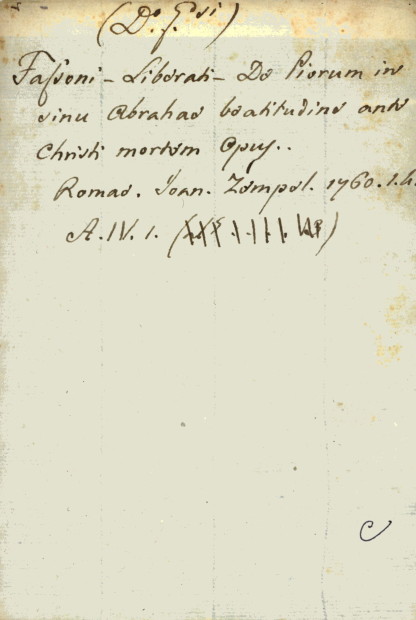 Fassoni - Liberati - De Piorum in
sinu Abrahae beatitudine ante
Christi mortem Opus..
Romae. Joan. Zempel. 1760. 1.4.
A. IV. 1.
C